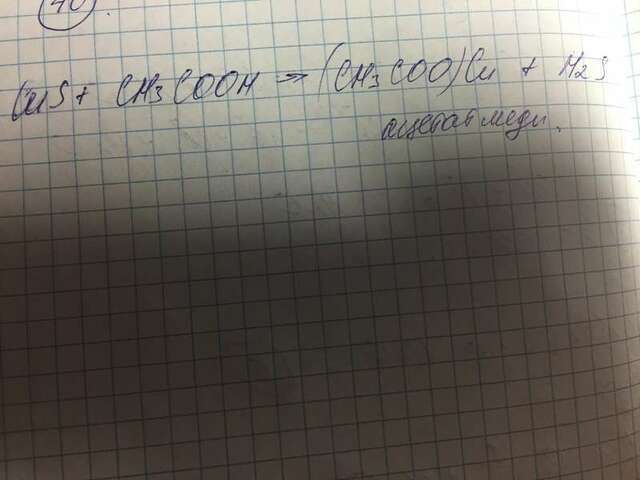 10).
CuS + CH₃COOH ⇒ (CH₃COO)Cu + H₂S
ацетат меди.